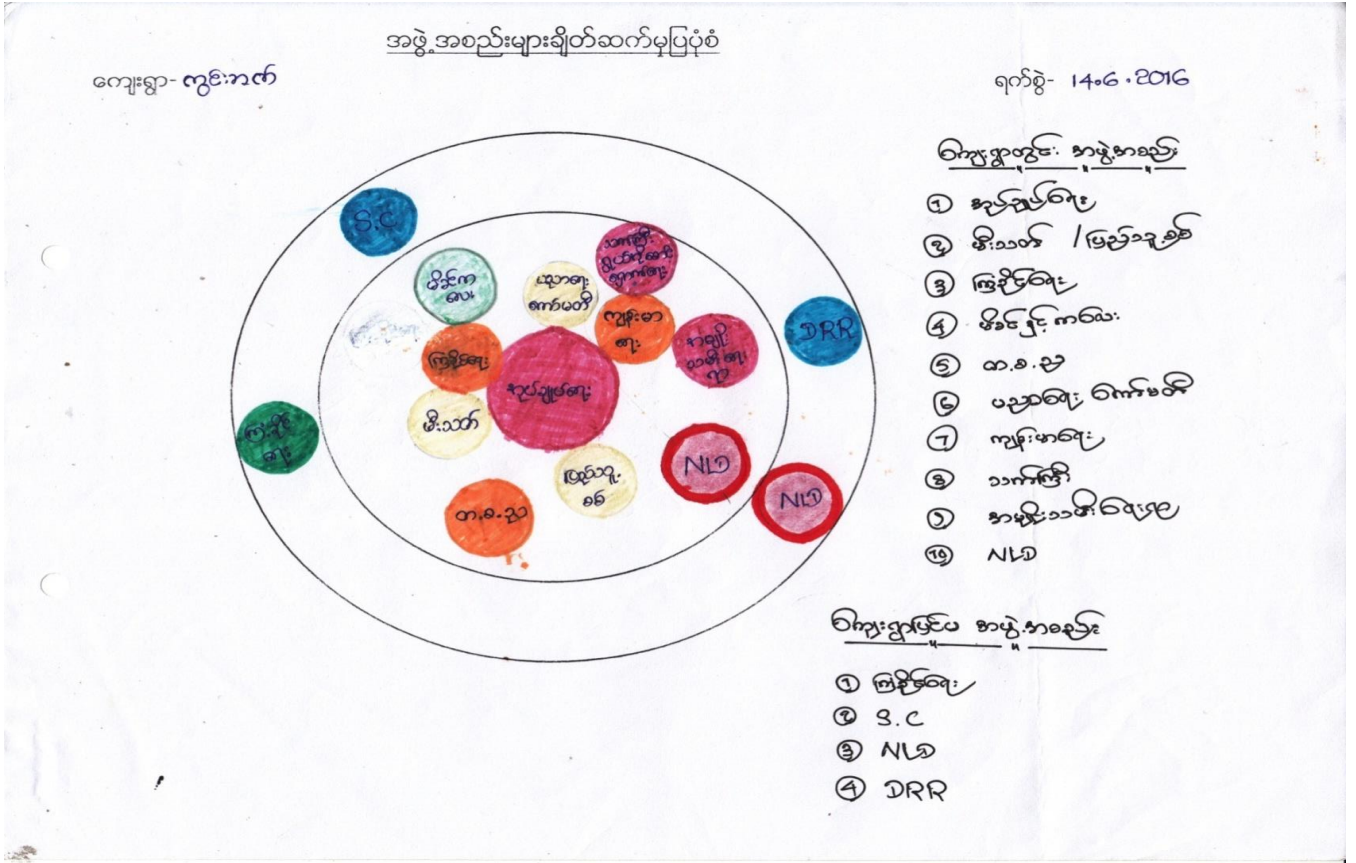 အဖွဲ့အစည်းများချိတ်ဆက်မှုပြပုံစံ
ကျေးရွာ- ကွင်းဘဏ်
ရက်စွဲ- 14.6.2016
S.C
မိခင်က
လေး
ပညာရေး
ကော်မတီ
သက်ကြီး
ကြံ့ခိုင်ရေး
ကျန်းမာ
ရေး
အမျိုး
သမီးရေး
ရာ
DRR
အုပ်ချုပ်ရေး
မီးသတ်
ကြံ့ခိုင်
ရေး
NLD
NLD
ပြည်သူ့
စစ်
တ.စ.ည
ကျေးရွာတွင်း အဖွဲ့အစည်း
① အုပ်ချုပ်ရေး
② မီးသတ် / ပြည်သူ့စစ်
③ ကြံ့ခိုင်ရေး
④ မိခင်နှင့်ကလေး
⑤ တ.စ.ည
⑥ ပညာရေး ကော်မတီ
⑦ ကျန်းမာရေး
⑧ သက်ကြီး
⑨ အမျိုးသမီးရေးရာ
⑩ NLD
ကျေးရွာပြင်ပ အဖွဲ့အစည်း
① ကြံ့ခိုင်ရေး
② S.C
③ NLD
④ DRR